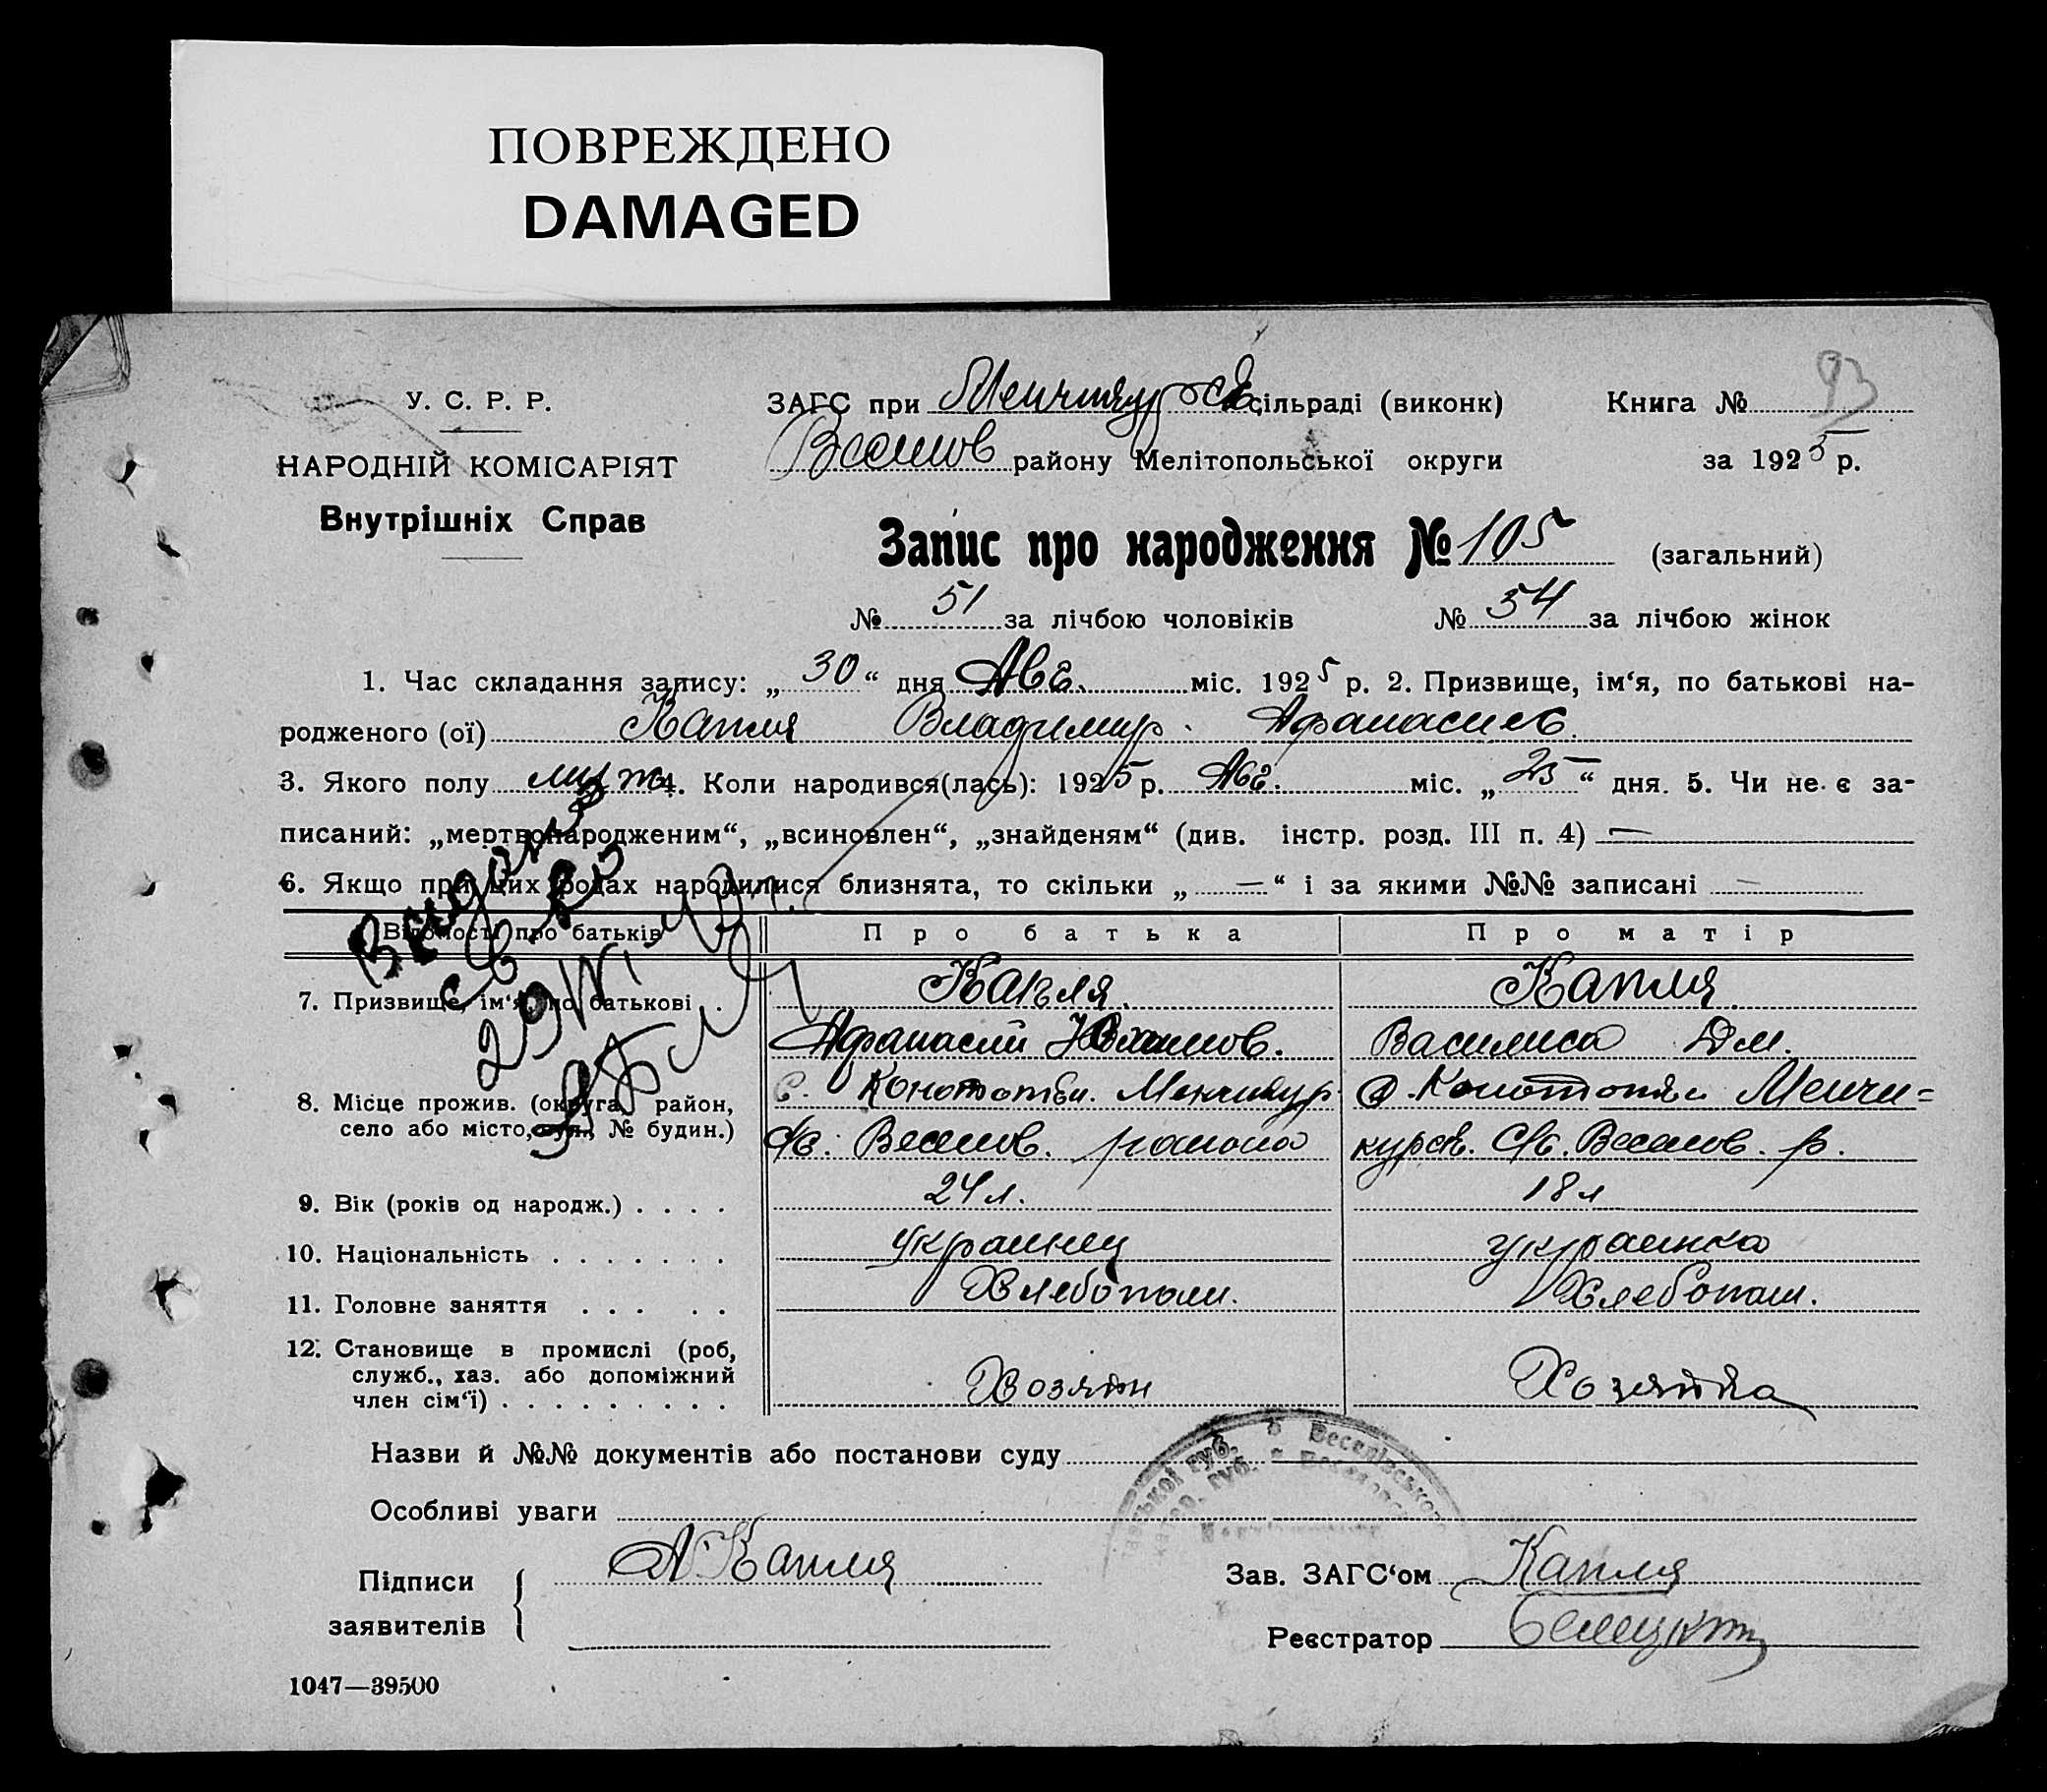 ПОВРЕЖДЕНО
DAMAGED
У. С. Р. Р.
НАРОДНІЙ КОМІСАРІЯТ
Внутрішніх Справ
ЗАГС при сільраді (виконк)
Книга № 93
Веселов району Мелітопольської округи
за 1925 р.
Запис про народження № 105 (загальний)
№ 51 за лічбою чоловіків № 54 за лічбою жінок
1. Час складання запису: „ 30 “ дня Авг. міс. 1925 р. 2. Призвище, ім‘я, по батькові на-
родженого (ої) Капля Владимир Афанасиев
3. Якого полу муж 4. Коли народився(лась): 1925 р. Авг. міс. „ 25 “ дня. 5. Чи не є за-
писаний: „мертвонародженим“, „всиновлен“, „знайденям“ (див. інстр. розд. III п. 4) —
6. Якщо при цих родах народилися близнята, то скільки „ — “ і за якими №№ записані —
Відомості про батьків Про батька Про матір
7. Призвище, ім‘я, по батькові . Капля. Капля.
Афанасий Василиса Дм.
8. Місце прожив. (округа, район,
село або місто, вул., № будин.)
с/с. Веселов. района
с/с. Веселов. р.
9. Вік (років од народж.) . . . . 24 л. 18 л
10. Національність . . . . . . . украинец украинка
11. Головне заняття . . . . . Хлебопаш. Хлебопаш.
12. Становище в промислі (роб,
служб., хаз. або допоміжний
член сім‘ї) . . . . . . . . . Хозяин Хозяйка
Назви й №№ документів або постанови суду
Особливі уваги
Підписи
заявителів
А Капля
Зав. ЗАГС‘ом Капля
Реєстратор
1047—39500
Видано